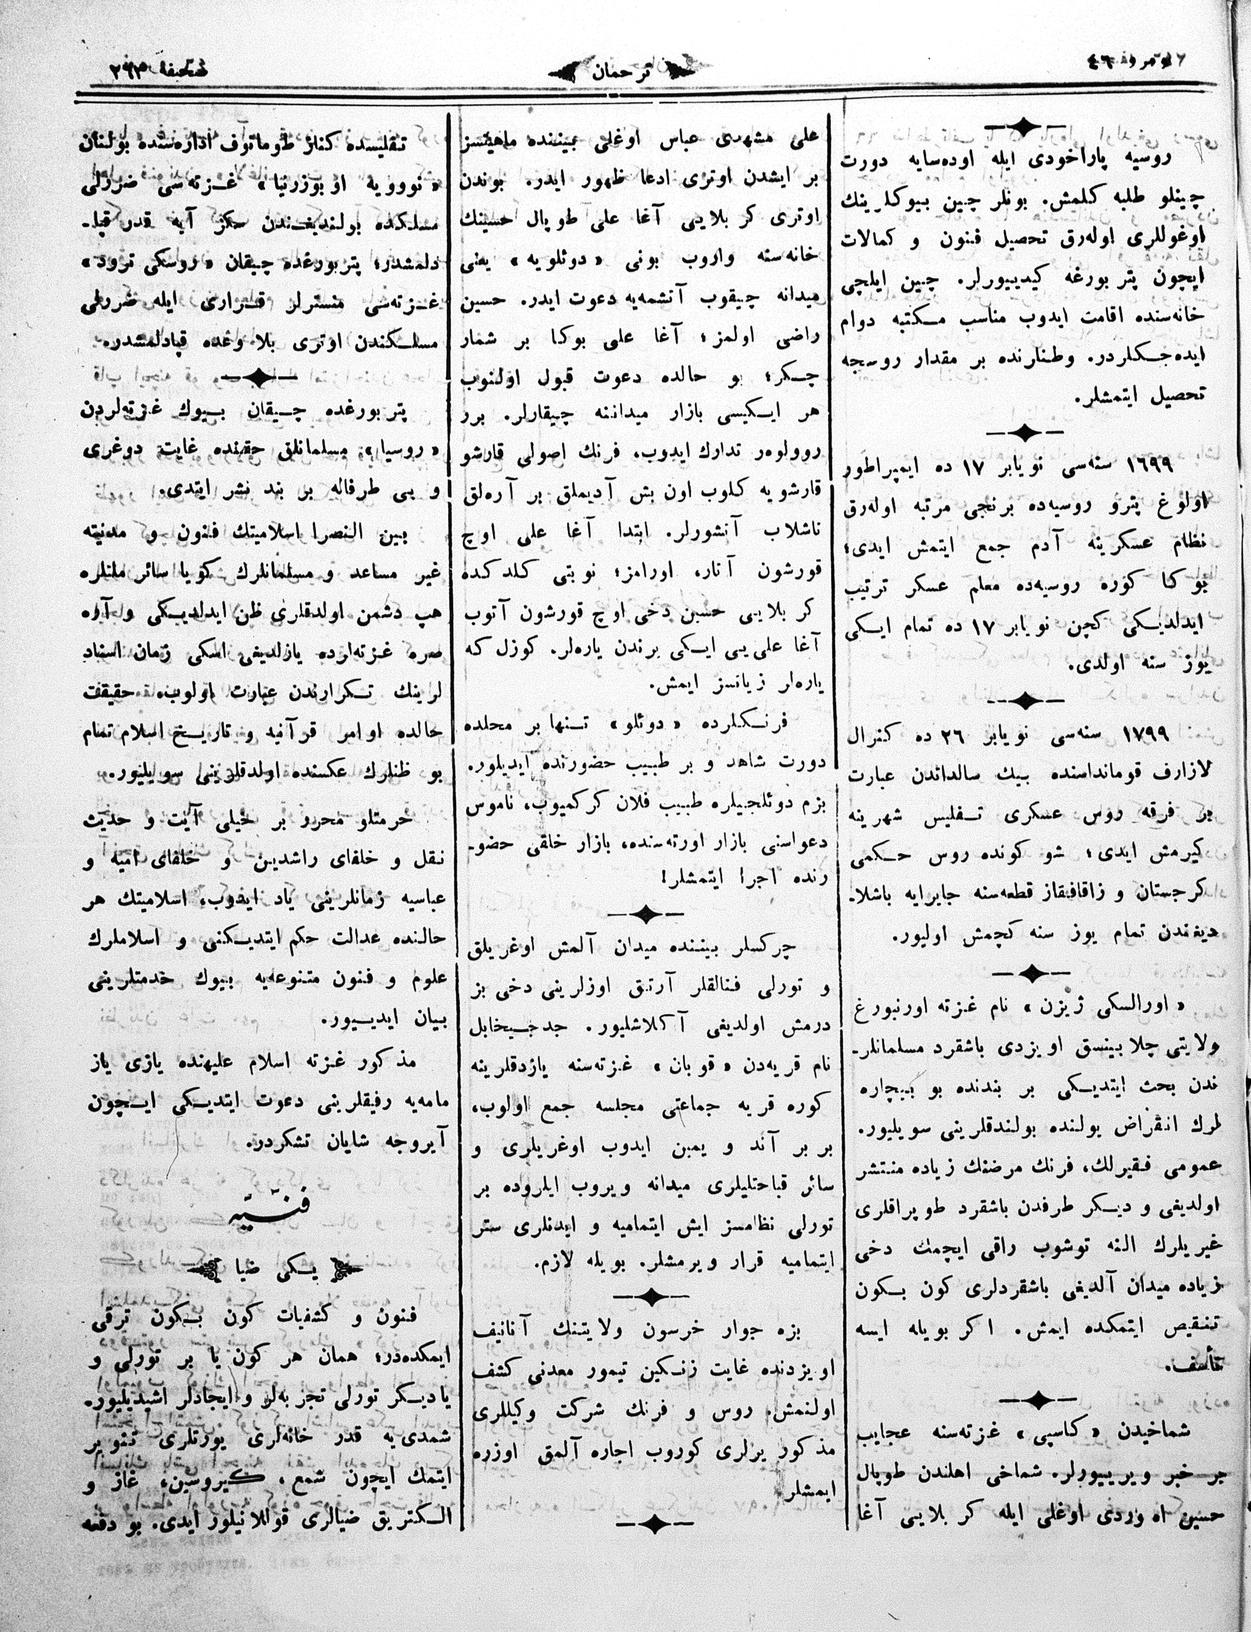 نومرو ٤٦
ترجمان
صحيفه ٢٩٣
روسيه پاراخودی ايله اوده‌سايه دورت
چينلو طلبه كلمش. بونلر چين بيوكلرينك
اوغوللری اوله‌رق تحصيل فنون و كمالات
ايچون پتربورغه كيدييورلر. چين ايلچی
خانه‌سنده اقامت ايدوب مناسب مكتبه دوام
ايده‌جكلردر. وطنلرنده بر مقدار روسجه
تحصيل ايتمشلر.
١٦٩٩ سنه‌سی نويابر ١٧ ده ايمپراطور
اولوغ پترو روسيه‌ده برنجی مرتبه اوله‌رق
نظام عسكرينه آدم جمع ايتمش ايدی؛
بوكا كوره روسيه‌ده معلم عسكر ترتيب
ايدلديكی كچن نويابر ١٧ ده تمام ايكی
يوز سنه اولدی.
١٧٩٩ سنه‌سی نويابر ٢٦ ده كنرال
لازارف قوماندانسنده بيك سالداتدن عبارت
بر فرقه روس عسكری تفليس شهرينه
كيرمش ايدی؛ شو كونده روس حكمی
كرجستان و زاقافقاز قطعه‌سنه جابرايه باشلا-
ديغندن تمام يوز سنه كچمش اوليور.
« اورالسكی ژيزن » نام غزته اورنبورغ
ولايتی چلابينسق اويزدی باشقرد مسلمانلر-
ندن بحث ايتديكی بر بندنده بو بيچاره
لرك انقراض يولنده بولندقلرينی سويليور.
عمومی فقيرلك، فرنك مرضنك زياده منتشر
اولديغی و ديكر طرفدن باشقرد طوپراقلری
غيريلرك النه توشوب راقی ايچمك دخی
زياده ميدان آلديغی باشقردلری كون بكون
تنقيص ايتمكده ايمش. اكر بويله ايسه
تأسف.
شماخيدن « كاسپی » غزته‌سنه عجايب
بر خبر ويرييورلر. شماخی اهلندن طوپال
حسين اه وردی اوغلی ايله كربلايی آغا
علی مشهدی عباس اوغلی بيننده ماهيتسز
بر ايشدن اوتری ادعا ظهور ايدر. بوندن
اوتری كربلايی آغا علی طوپال حسينك
خانه‌سنه واروب بونی « دوئلويه » يعنی
ميدانه چيقوب آتشمه‌يه دعوت ايدر. حسين
راضی اولمز؛ آغا علی بوكا بر شمار
چكر؛ بو حالده دعوت قبول اولنوب
هر ايكيسی بازار ميداننه چيقارلر. برر
روولوه‌ر تدارك ايدوب، فرنك اصولی قارشو
قارشويه كلوب اون بش آديملق بر آره‌لق
تاشلاب آتشورلر. ابتدا آغا علی اوچ
قورشون آتار، اورامز؛ نوبتی كلدكده
كربلايی حسين دخی اوچ قورشون آتوب
آغا علی‌يی ايكی يرندن ياره‌لر. كوزل كه
ياره‌لر زيانسز ايمش.
فرنكلرده « دوئلو » تنها بر محلده
دورت شاهد و بر طبيب حضورنده ايديلور.
بزم دوئلجيلره طبيب فلان كركميوب، ناموس
دعواسنی بازار اورته‌سنده، بازار خلقی حضو-
رنده اجرا ايتمشلر!
چركسلر بيننده ميدان آلمش اوغريلق
و تورلی فنالقلر آرتق اوزلرينی دخی بز
درمش اولديغی آكلاشليور. جدجيخابل
نام قريه‌دن « قوبان » غزته‌سنه يازدقلرينه
كوره قريه جماعتی مجلسه جمع اولوب،
بر بر آند و يمين ايدوب اوغريلری و
سائر قباحتليلری ميدانه ويروب ايلروده بر
تورلی نظامسز ايش ايتماميه و ايدنلری ستر
ايتماميه قرار ويرمشلر. بويله لازم.
بزه جوار خرسون ولايتنك آنانيف
اويزدنده غايت زنكين تيمور معدنی كشف
اولنمش. روس و فرنك شركت وكيللری
مذكور يرلری كوروب اجاره آلمق اوزره
ايمشلر.
تفليسده كناز طوماتوف اداره‌سنده بولنان
« نوويه اوبوزرنيا » غزته‌سی ضررلی
مسلكده بولنديغندن سكز آيه قدر قپا-
دلمشدر؛ پتربورغده چيقان « روسكی ترود »
غزته‌سی منسترلر قراری ايله ضررلی
مسلكندن اوتری بلا وعده قپادلمشدر.
پتربورغده چيقان بيوك غزته‌لردن
« روسيا » مسلمانلق حقنده غايت دوغری
و بی طرفانه بر بند نشر ايتدی.
بين النصرا اسلاميتك فنون و مدنيته
غير مساعد و مسلمانلرك كويا سائر مللره
هپ دشمن اولدقلری ظن ايدلديكی و آره
صره غزته‌لرده يازلديغی اسكی زمان اسناد
لرينك تكرارندن عبارت اولوب، حقيقت
حالده اوامر قرآنيه و تاريخ اسلام تمام
بو ظنلرك عكسنده اولدقلرينی سويليور.
حرمتلو محرر بر خيلی آيت و حديث
نقل و خلفای راشدين و خلفای اميه و
عباسيه زمانلرينی ياد ايدوب، اسلاميتك هر
حالنده عدالت حكم ايتديكنی و اسلاملرك
علوم و فنون متنوعه‌يه بيوك خدمتلرينی
بيان ايدييور.
مذكور غزته اسلام عليهنده يازی ياز
مامه‌يه رفيقلرينی دعوت ايتديكی ايچون
آيروجه شايان تشكردر.
فنيّه
يكی ضيا
فنون و كشفيات كون بكون ترقی
ايمكده‌در؛ همان هر كون يا بر تورلی و
ياديكر تورلی تجربه‌لر و ايجادلر اشيديليور.
شمدی‌يه قدر خانه‌لری يورتلری تنوير
ايتمك ايچون شمع، كيروسين، غاز و
الكتريق ضيالری قوللانيلور ايدی. بو دفعه